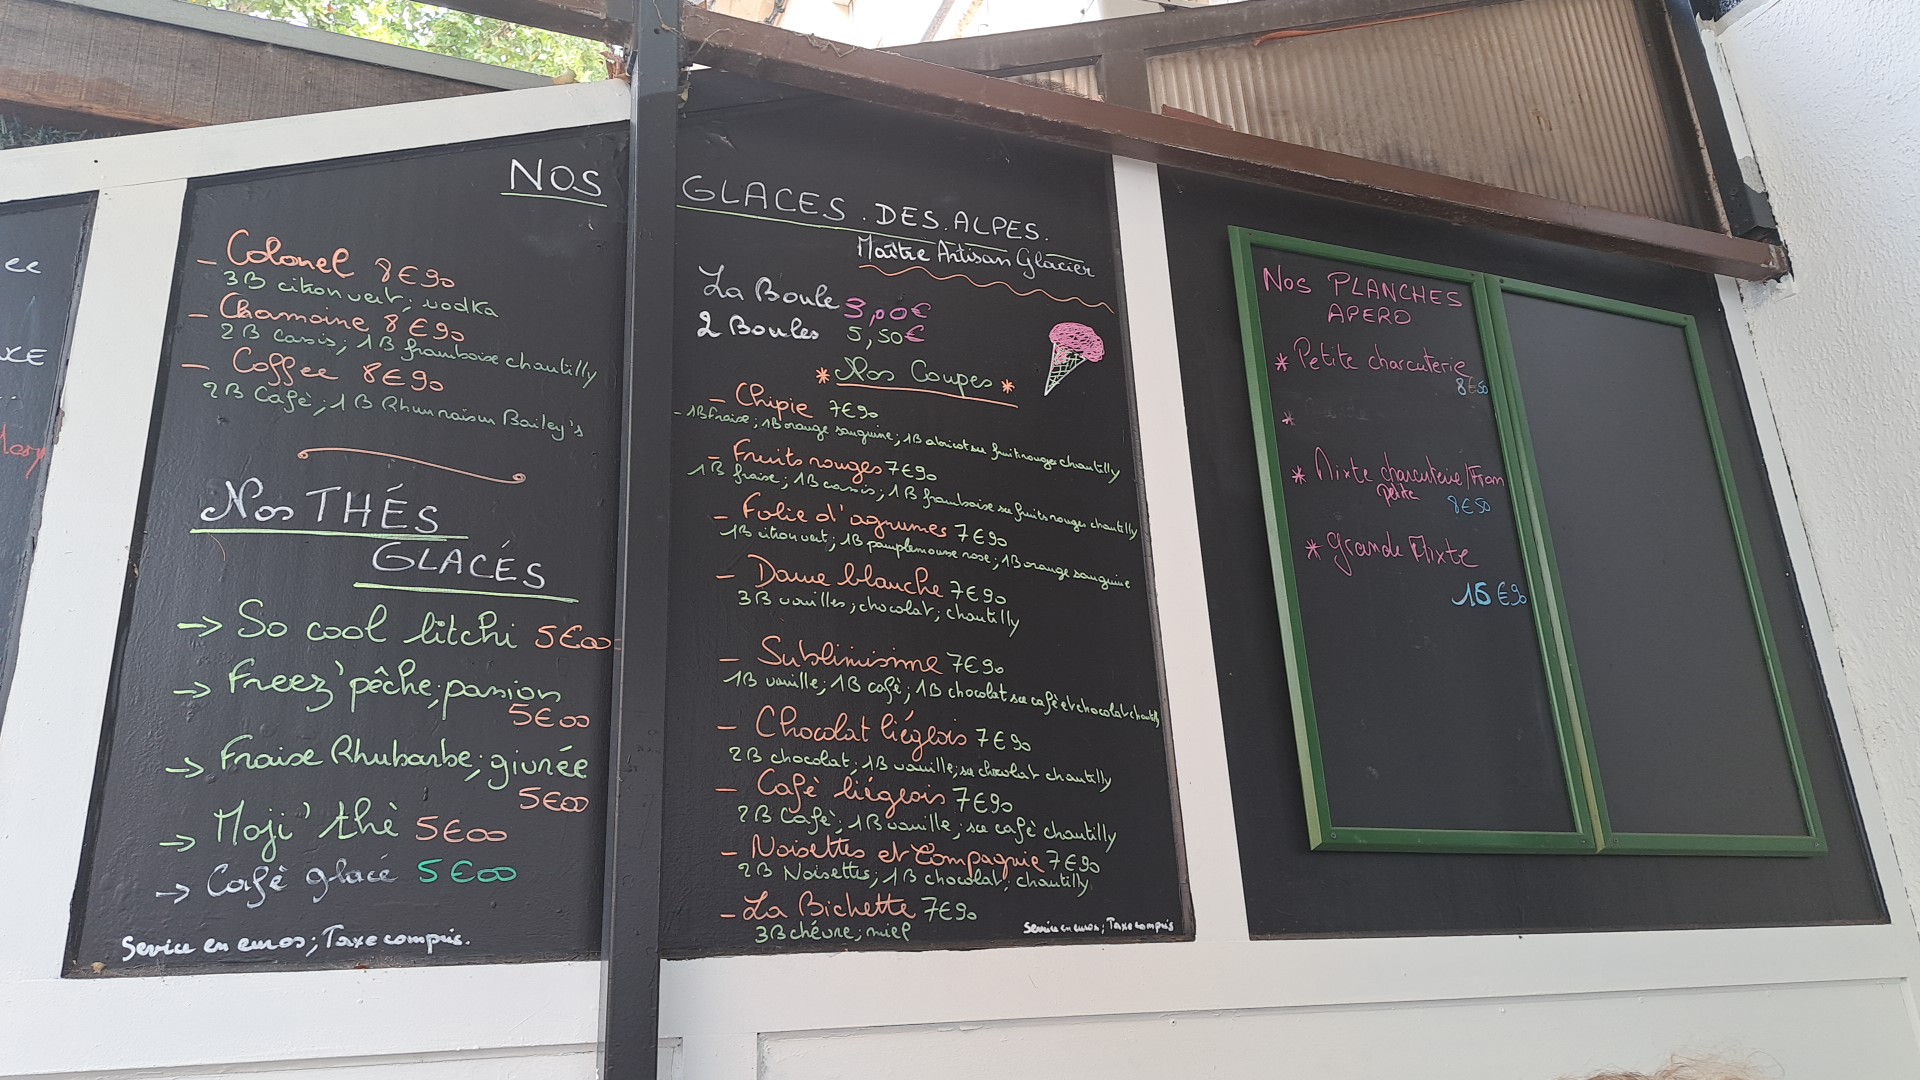 NOS GLACES.DES.ALPES.
Maître Artisan Glacier
- Colonel 8€90
3B citron vert; vodka
- Chamoine 8€90
2B Cassis; 1B framboise chantilly
- Coffee 8€90
2B Café; 1B Rhum raisin Bailey's
Nos THÉS
GLACÉS
→ So cool litchi 5€00
→ Freez'pêche; passion
5€00
→ Fraise Rhubarbe; givrée
5€00
→ Moji'thè 5€00
→ Cafè glacé 5€00
Service en euros; Taxe compris.
La Boule 3,00€
2 Boules 5,50€
* Nos Coupes *
- Chipie 7€90
- 1B fraise; 1B orange sanguine; 1B abricot sce fruits rouges chantilly
- Fruits rouges 7€90
1B fraise; 1B cassis; 1B framboise sce fruits rouges chantilly
- Folie d'agrumes 7€90
1B citron vert; 1B pamplemousse rose; 1B orange sanguine
- Dame blanche 7€90
3B vanilles; chocolat; chantilly
- Sublimisime 7€90
1B vanille; 1B café; 1B chocolat sce café et chocolat chantilly
- Chocolat liégeois 7€90
2B chocolat; 1B vanille; sce chocolat chantilly
- Cafè liégeois 7€90
2B Cafè; 1B vanille; sce cafè chantilly
- Noisettes et Compagnie 7€90
2B Noisettes; 1B chocolat; chantilly
- La Bichette 7€90
3B chèvre; miel
Service en euros; Taxe compris
NOS PLANCHES
APERO
* Petite charcuterie
8€50
*
* Mixte charcuterie/From
petite 8€50
* Grande Mixte
16€90